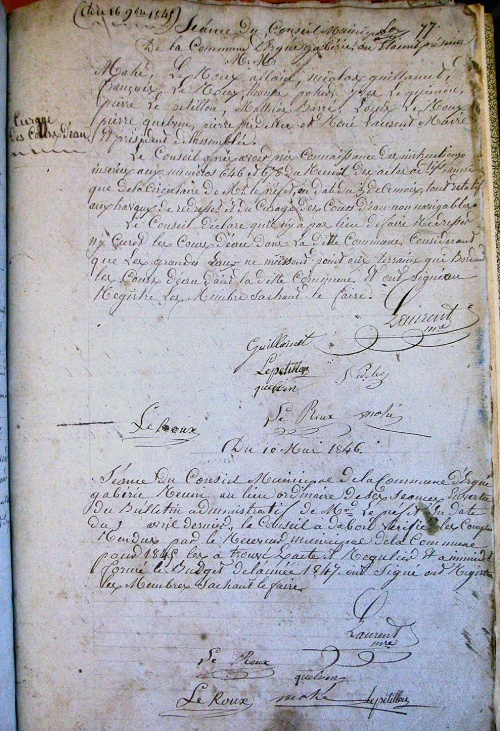 (du 16 9bre 1845)
77
Séance Du Conseil Municipal
De la Commune D'Ergué gabéric, où étaient présents
M. M.
Mahé, Le Roux alain, nicolas guillamet,
françois Le Roux,
pierre Le petillon, Mathias Louis Le Roux
pierre quelven, pierre et René Laurent Maire
et président assemblés.
Curage
des Cours d'eau
Le Conseil après avoir pris connaissance des instructions
inserées aux numéros 646 et 678 du Recueil des actes
que de la Circulaire de Mr le préfet, en date du 3 de ce mois, tout relatif
aux travaux de redressement et du Curage des Cours d'eau non navigables
Le Conseil déclare qu'il n'y a pas lieu de faire Redresser
ny Curer les Cours d'eau dans la ditte Commune, Considérant
que les grandes Eaux ne nuissent point aux terrains qui Bordent
les Cours d'eau dans la ditte Commune. Et ont signé au
Registre les Membre Sachant le faire.
Laurent
mre
Guillamet
Lepetillon
quelven
Le Roux
Le Roux mahé
Du 10 Mai 1846.
Séance Du Conseil Municipal de la Commune d'Ergué
gabéric Reuni au lieu ordinaire de ses séances
du Bulletin administratif de Mr le préfet en date
du avril dernier, le Conseil a d'abord vérifié les Comptes
Rendus par le Receveur municipal de la Commune
pour 1845 les a trouvé Exacte et Régulier Et a
formé le Budget de l'année 1847. ont Signé au Registre
les Membres Sachant le faire.
Laurent
mre
Le Roux
quelven
Le Roux mahé Lepetillon